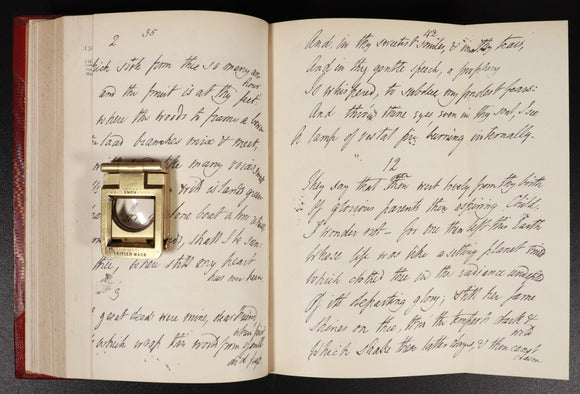 2 35
so many an
hour
and the fruit is at thy feet
where the woods to frame a
branches mix & meet,
the many voices
islands green
lone boat
BRITISH MADE
shall I be
thee, where still my heart
has ever been
3
great deeds were mine, dear Friend,
when first
which wrap this world from youth
did pass
42
And, in thy sweetest smiles, & in thy tears,
And in thy gentle speech, a prophecy
Is whispered, to subdue my fondest fears:
And thro' thine eyes even in thy soul, I see
A lamp of vestal fire burning internally.
12
They say that thou wert lovely from thy birth
Of glorious parents thou aspiring Child.
I wonder not — for one then left this Earth
Whose life was like a setting planet mild
Which clothed thee in the radiance undefiled
Of its departing glory; still her fame
Shines on thee, thro' the tempests dark &
wild
Which shake these latter days, & thou canst
claim